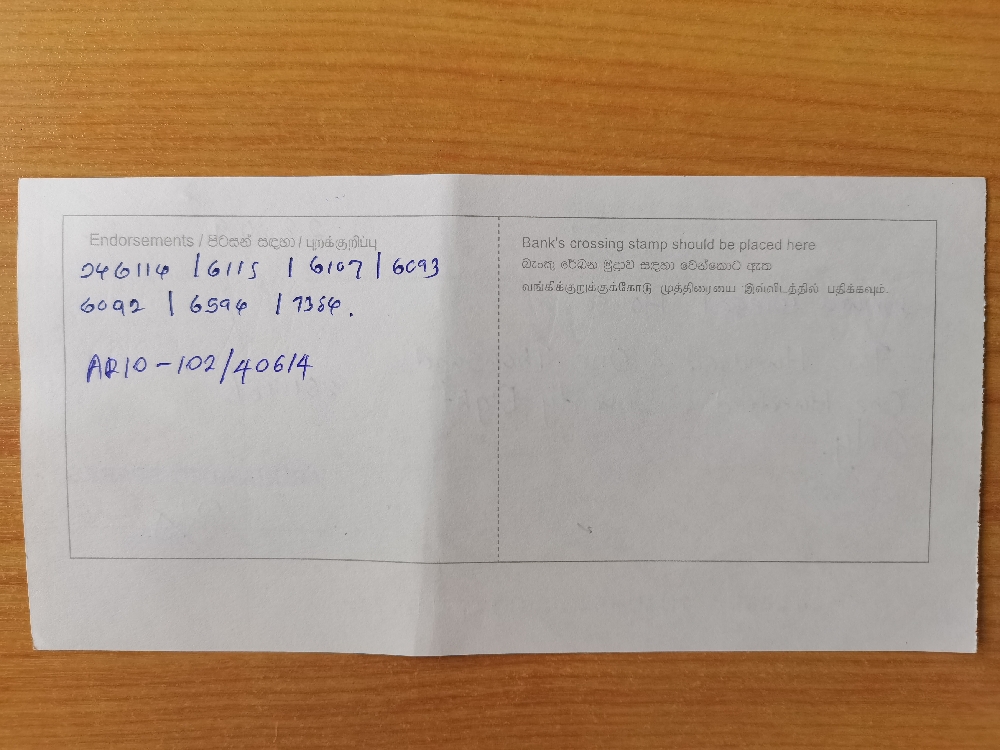 Endorsements / පිටසන් සඳහා / புறக்குறிப்பு
246114 / 6115 / 6107 / 6093
6092 / 6594 / 7364.
AR10-102/40614
Bank's crossing stamp should be placed here
බැංකු රේඛන මුද්‍රාව සඳහා වෙන්කොට ඇත
வங்கிக்குறுக்குக்கோடு முத்திரையை இவ்விடத்தில் பதிக்கவும்.